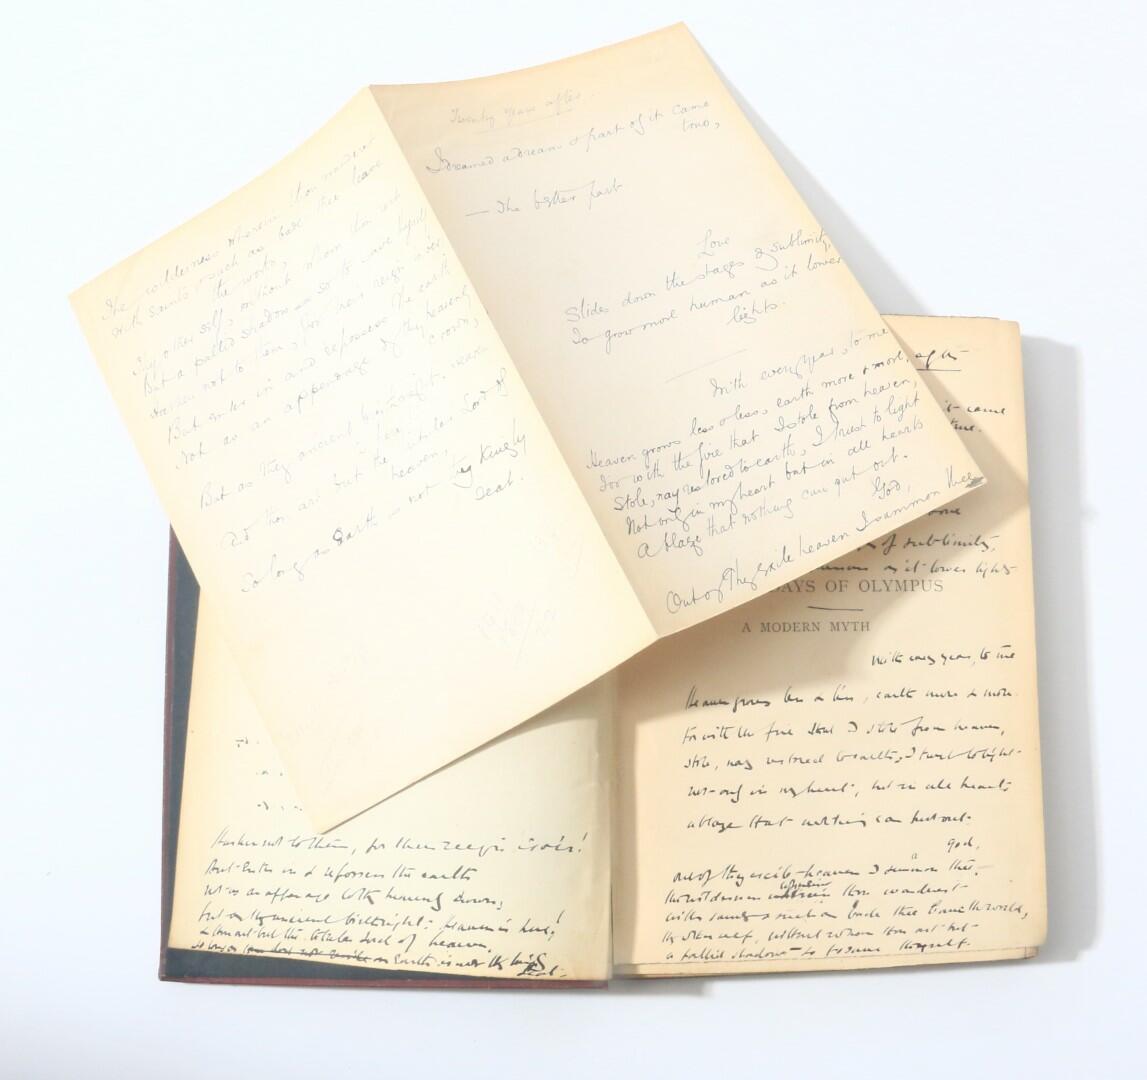 The wilderness wherein thou wanderest
with saints & such as bade thee leave
the world,
Thy other self, without whom thou art
But a pallid shadow — so to save thyself
Hearken not to them, for their reign is over
But enter in and repossess the earth
Not as an appendage of thy heavenly
Crown,
But as thy ancient birthright.
And thou art but the titular Lord of
heaven,
So long as Earth is not thy Kingly
Seat.
Twenty years after...
I dreamed a dream & part of it came
true,
— The better part
Love
Slides down the stages of sublimity
To grow more human as it lower
lights.
With every year, to me
Heaven grows less & less, earth more & more,
For with the fire that I stole from heaven,
Stole, nay restored to earth, I trust to light
Not only in my heart but in all hearts
A blaze that nothing can put out.
God,
Out of Thy exile heaven I summon thee
it came
true.
of sublimity,
as it lower lights
DAYS OF OLYMPUS
A MODERN MYTH
With every year, to me
Heaven grows less & less, earth more & more.
For with the fire that I stole from heaven,
stole, nay restored to earth, I trust to light
not only in my heart, but in all hearts
a blaze that nothing can put out.
God,
out of thy exile-heaven I summon thee,
thou wanderest
with saints & such as bade thee leave the world,
thy other self, without whom thou art not
a pallid shadow — to thyself.
Hearken not to them, for their reign is o'er!
But enter in & repossess the earth
not as an appanage to thy heavenly crown,
but as thy ancient birthright: heaven is here!
& thou art but the titular Lord of heaven,
so long as Earth is not thy kingly
Seat.